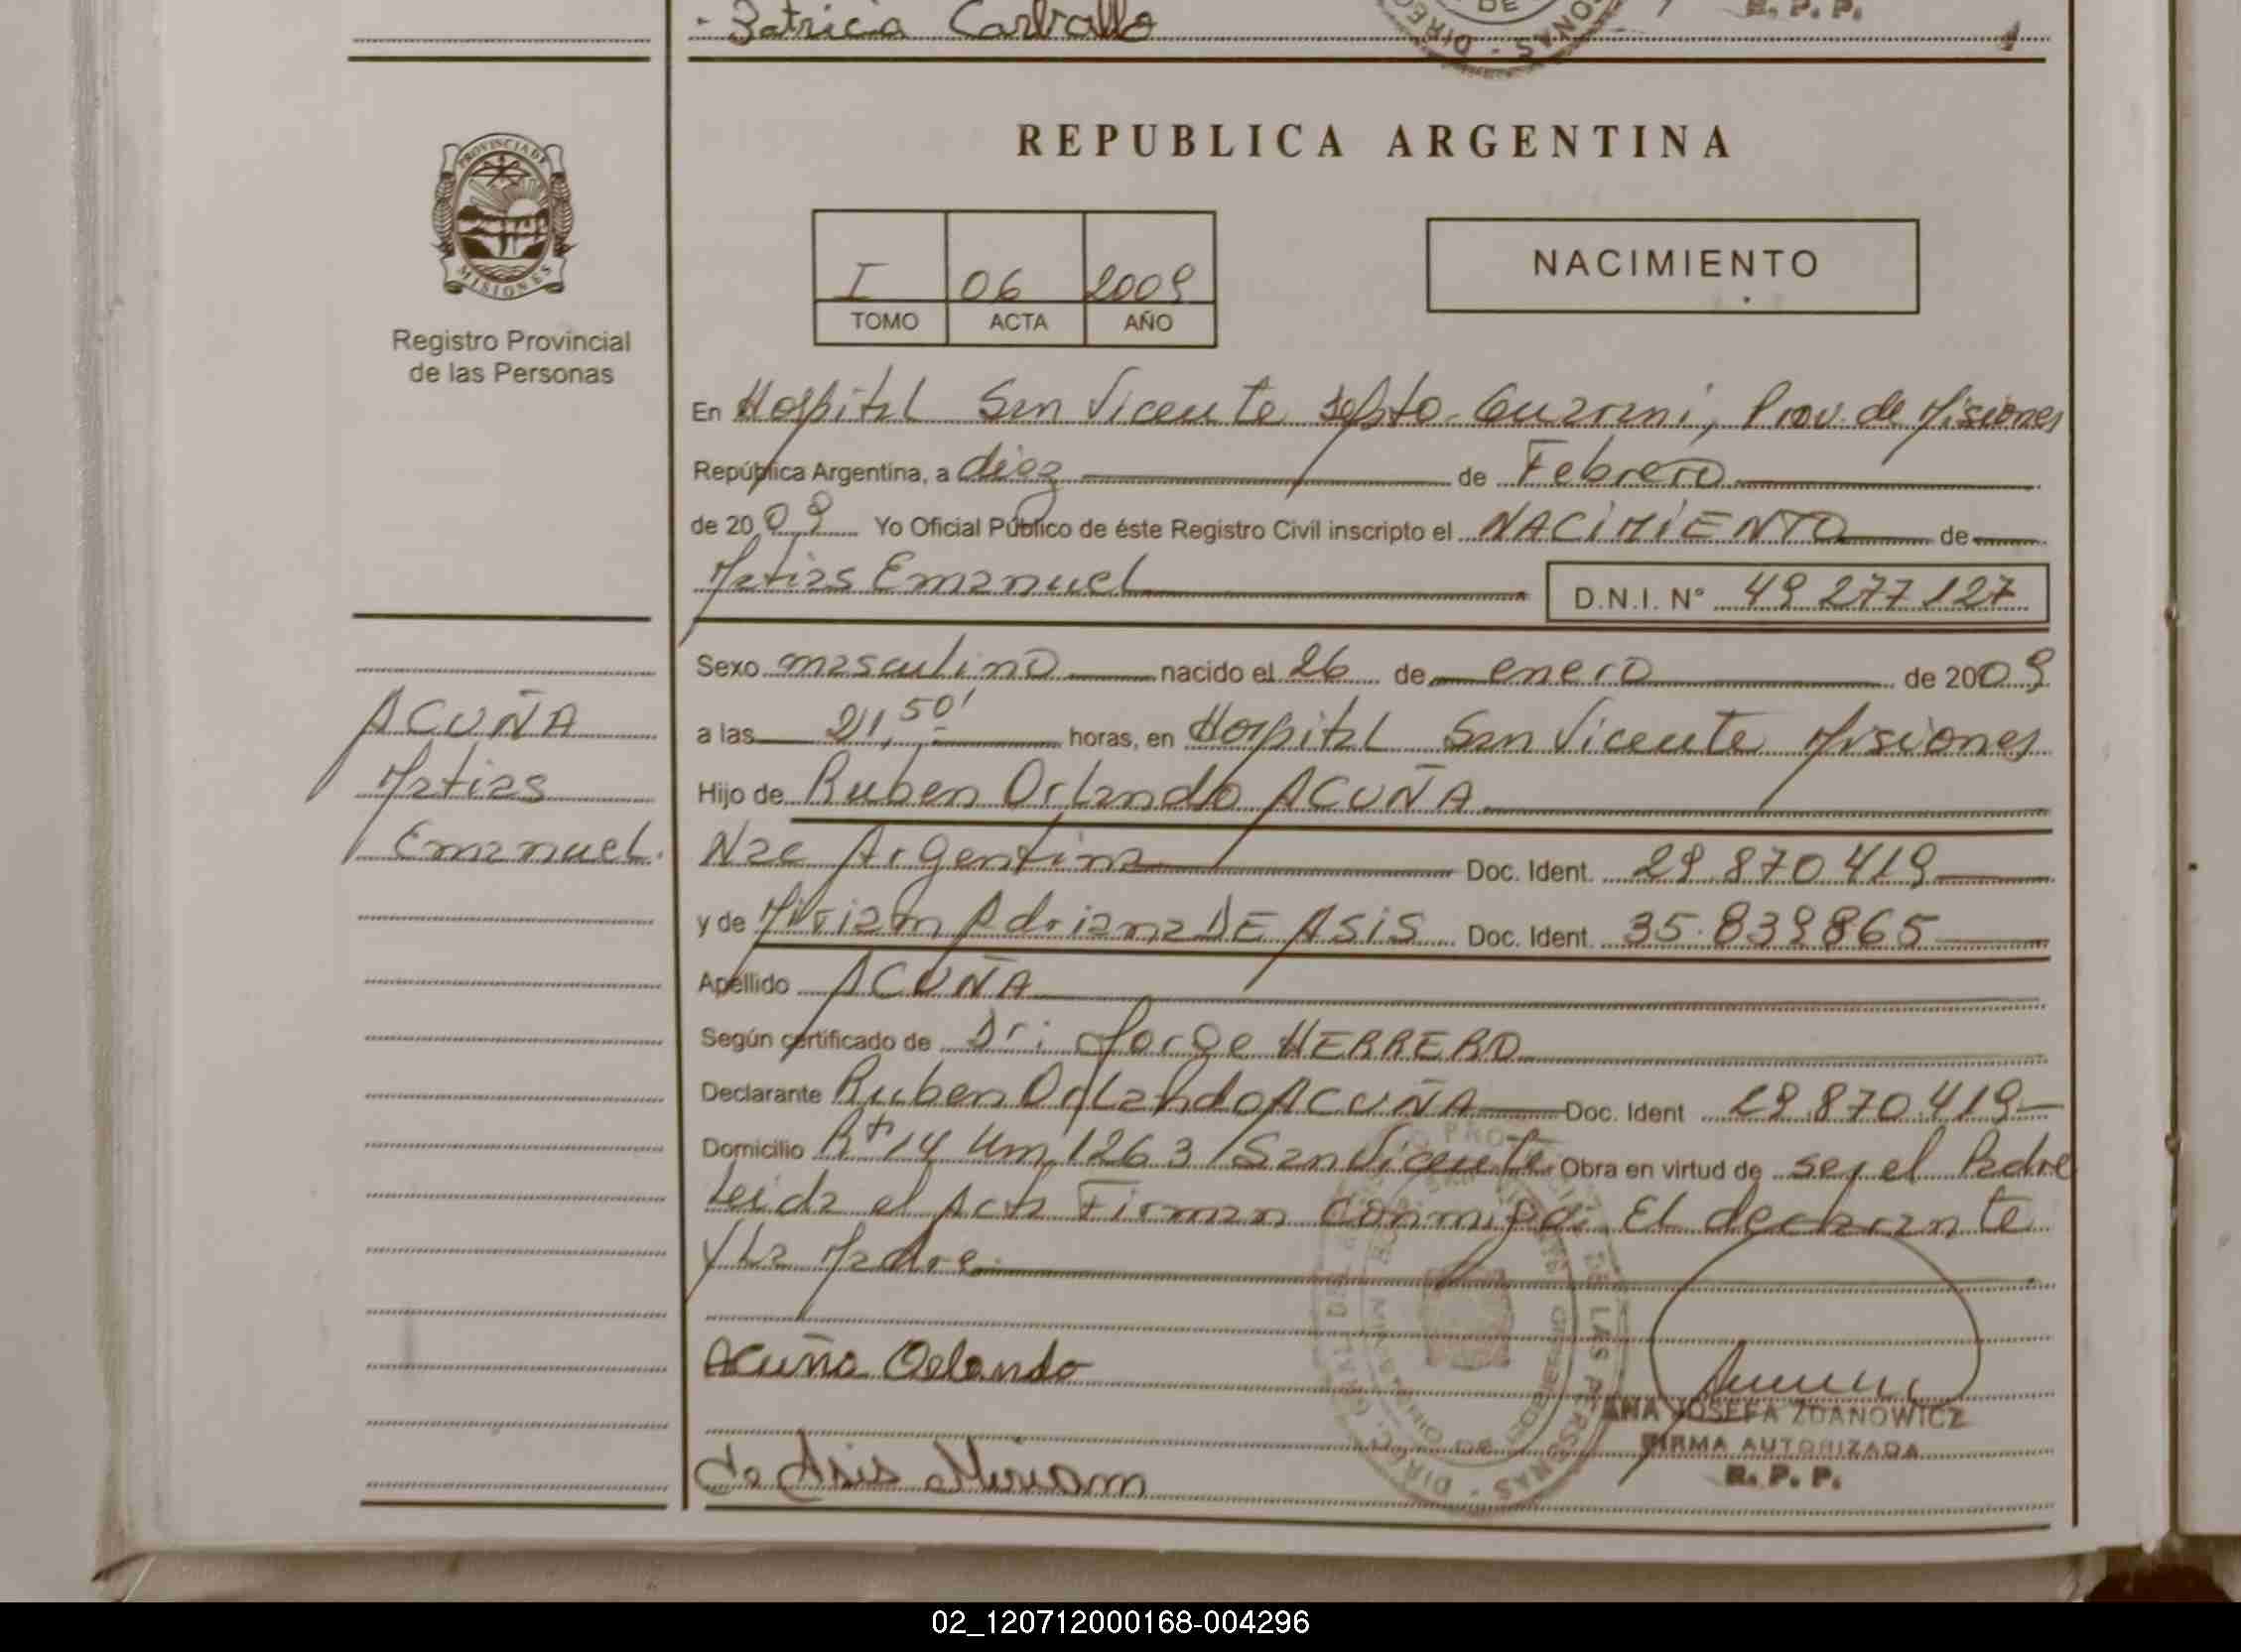 - Patricia Carballo
R. P. P.
REPUBLICA ARGENTINA
PROVINCIA DE
MISIONES
Registro Provincial
de las Personas
I 06 2009
TOMO ACTA AÑO
NACIMIENTO
En Hospital San Vicente Depto. Guarani, Prov. de Misiones
República Argentina, a diez de Febrero
de 2009 Yo Oficial Público de éste Registro Civil inscripto el NACIMIENTO de
Matias Emanuel D.N.I. N° 49 277 127
Sexo masculino nacido el 26 de enero de 2009
a las 21,50' horas, en Hospital San Vicente Misiones
Hijo de Ruben Orlando ACUÑA
Nac Argentina Doc. Ident. 29.870.419
y de Miriam Adriana DE ASiS Doc. Ident. 35.839865
Apellido ACUÑA
Según certificado de Dr: Jorge HERRERO
Declarante Ruben Orlando ACUÑA Doc. Ident 29.870.419
Domicilio Rta 14 Km 1263 San Vicente Obra en virtud de ser el Padre
Leida el Acta Firman Conmigo El declarante
y La Madre
ACUÑA
Matias
Emanuel.
Acuña Orlando
De Asis Miriam
ANA JOSEFA ZDANOWICZ
FIRMA AUTORIZADA
R. P. P.
02_120712000168-004296